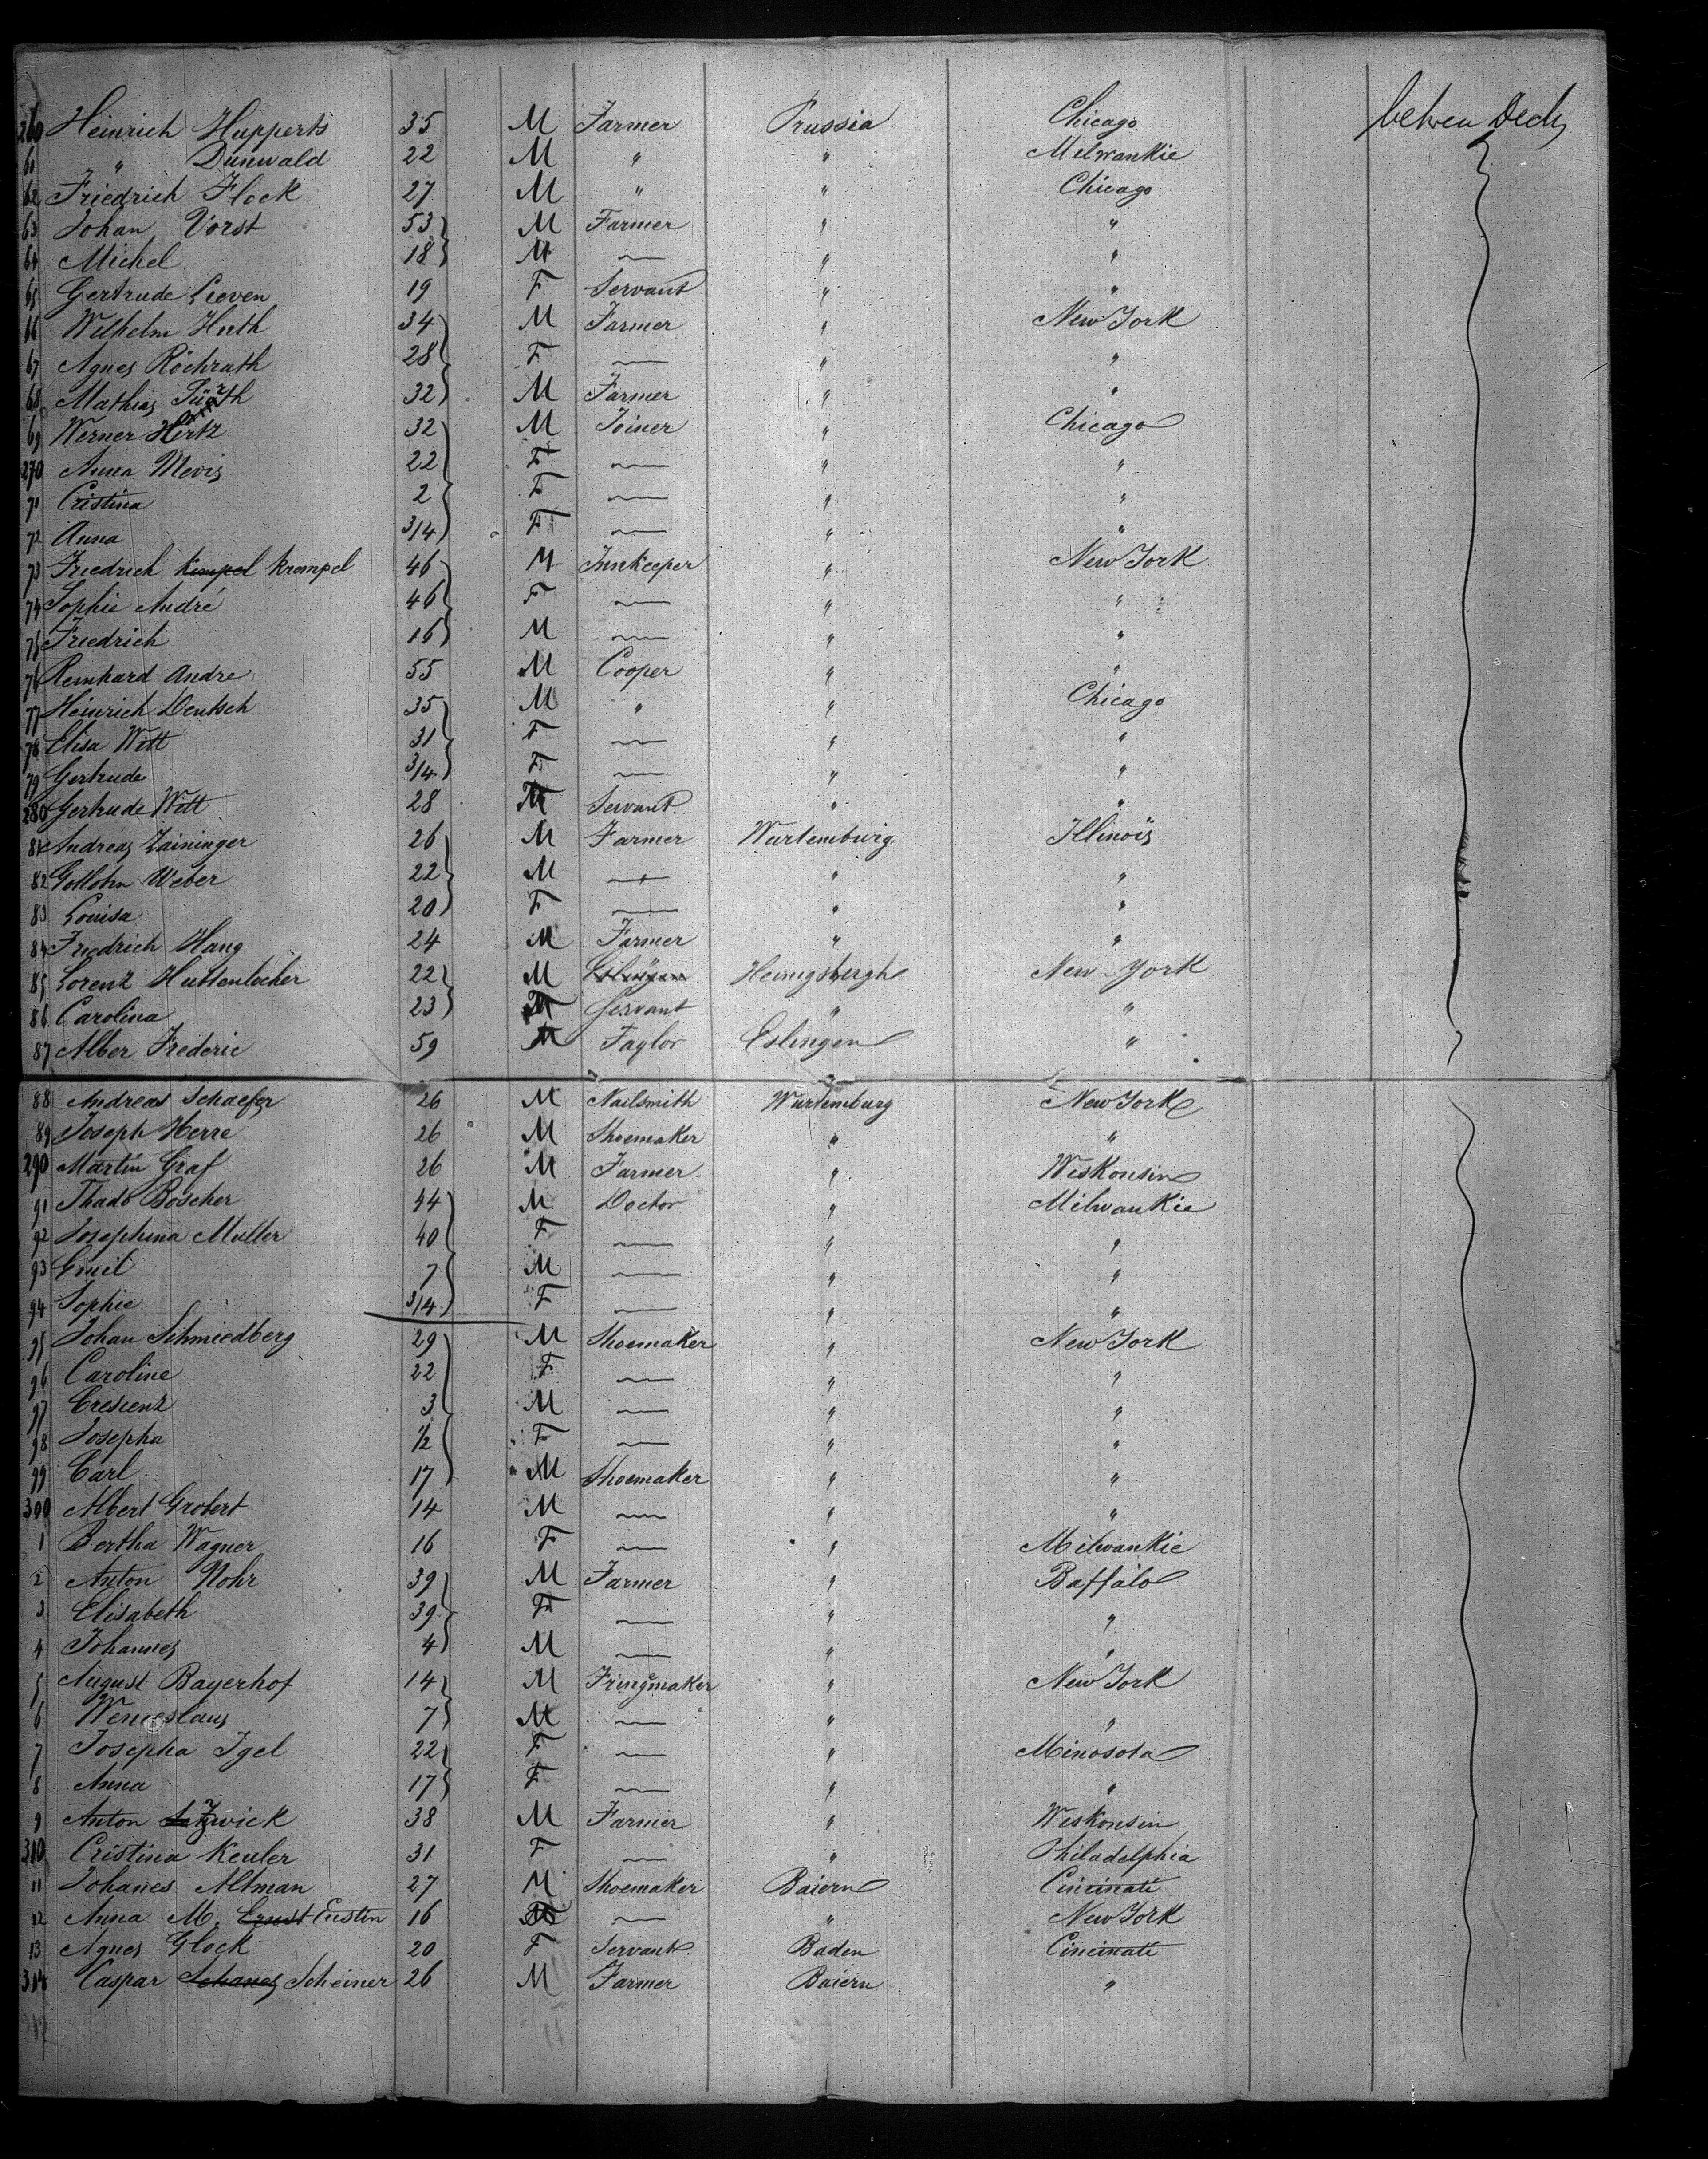 260 Heinrich Hupperts 35 M Farmer Prussia Chicago betwen Deck
61 " Dünwald 22 M " " Milwankie
62 Friedrich Flock 27 M " " Chicago
63 Johan Vorst 53 M Farmer " "
64 Michel 18 M — " "
65 Gertrude Lieven 19 F Servant " "
66 Wilhelm Huth 34 M Farmer " New York
67 Agnes Röchrath 28 F — " "
68 Mathias 32 M Farmer " "
69 Werner 32 M Joiner " Chicago
270 Anna Mevis 22 F — " "
71 Cristina 2 F — " "
72 Anna 3/4 F — " "
73 Friedrich Kempel Krempel 46 M Innkeeper " New York
74 Sophie André 46 F — " "
75 Friedrich 16 M — " "
76 Reinhard Andre 55 M Cooper " "
77 Heinrich Deutsch 35 M " " Chicago
78 Elisa Witt 31 F — " "
79 Gertrude 3/4 F — " "
280 Gertrude Witt 28 Servant " "
81 Andreas Zaininger 26 M Farmer Wurtemburg Illinois
82 Weber 22 M — " "
83 Louisa 20 F — " "
84 Friedrich Hang 24 M Farmer " "
85 Lorenz Huttenlocher 22 M Heinigsbergh New York
86 Carolina 23 Servant " "
87 Alber Frederic 59 M Taylor Eslingen "
88 Andreas Schaefer 26 M Nailsmith Wurtemburg New York
89 Joseph Herre 26 M Shoemaker " "
290 Martin Graf 26 M Farmer " Wiskonsin
91 Thadö Böscher 44 M Doctor " Milwankie
92 Josephina Muller 40 F — " "
93 Emil 7 M — " "
94 Sophie 3/4 F — " "
95 Johan Schmiedberg 29 M Shoemaker " New York
96 Caroline 22 F — " "
97 Crescenz 3 M — " "
98 Josepha 1/2 F — " "
99 Carl 17 M Shoemaker " "
300 Albert Grobert 14 M — " "
1 Bertha Wagner 16 F — " Milwankie
2 Anton Nohr 39 M Farmer " Baffalo
3 Elisabeth 39 F — " "
4 Johannes 4 M — " "
5 August Bayerhof 14 M Fringmaker " New York
6 Wenceslaus 7 M — " "
7 Josepha Igel 22 F — " Minosota
8 Anna 17 F — " "
9 Anton Zwick 38 M Farmer " Wiskonsin
310 Cristina Keuler 31 F — " Philadelphia
11 Johanes Altman 27 M Shoemaker Baiern Cincinati
12 Anna M. Ernst Eustin 16 — " New York
13 Agnes Glock 20 F Servant Baden Cincinati
314 Caspar Scheiner 26 M Farmer Baiern "